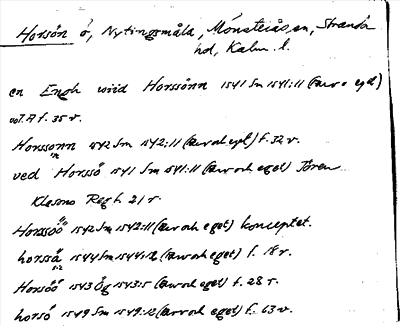 Horsön ö, Nytingsmåla, Mönsterås sn, Stranda
hd, Kalm. l.
en Engh wiid Horssönn 1541 Sm 1541:11 (Ärv o eget)
vol. A f. 35 v.
Horssonn 1542 Sm 1542:11 (Ärv och eget) f. 32 v.
ved Horssö 1541 Sm 1541:11 (Ärv och eget) Tören
Klesons Regh 21 r.
Horssöö 1542 Sm 1542:11 (Ärv och eget) konceptet.
horssä 1544 Sm 1544:12 (Ärv och eget) f. 18 r.
Horsöö 1543 Ög 1543:5 (Ärv och eget) f. 28 r.
horsö 1549 Sm 1549:12 (Ärv och eget) f. 63 v.